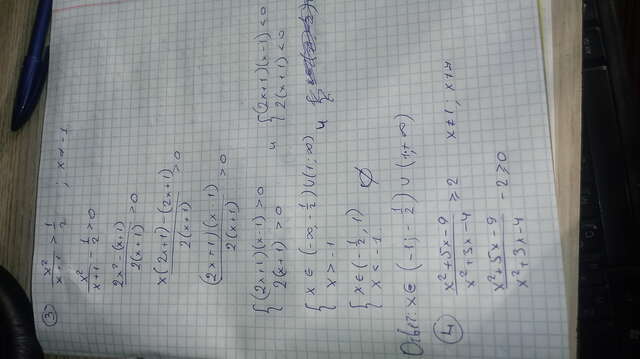 3) x²/(x+1) > 1/2 ; x ≠ -1
x²/(x+1) - 1/2 > 0
(2x² - (x+1))/(2(x+1)) > 0
(x(2x+1) - (2x+1))/(2(x+1)) > 0
((2x+1)(x-1))/(2(x+1)) > 0
{ (2x+1)(x-1) > 0 и { (2x+1)(x-1) < 0
2(x+1) > 0 2(x+1) < 0
{ x ∈ (-∞, -1/2) ∪ (1; ∞) и {
x > -1
{ x ∈ (-1/2, 1) ∅
x < -1
Ответ: x ∈ (-1; -1/2) ∪ (1; +∞)
4) (x²+5x-9)/(x²+3x-4) ≥ 2 x ≠ 1 ; x ≠
(x²+5x-9)/(x²+3x-4) - 2 ≥ 0